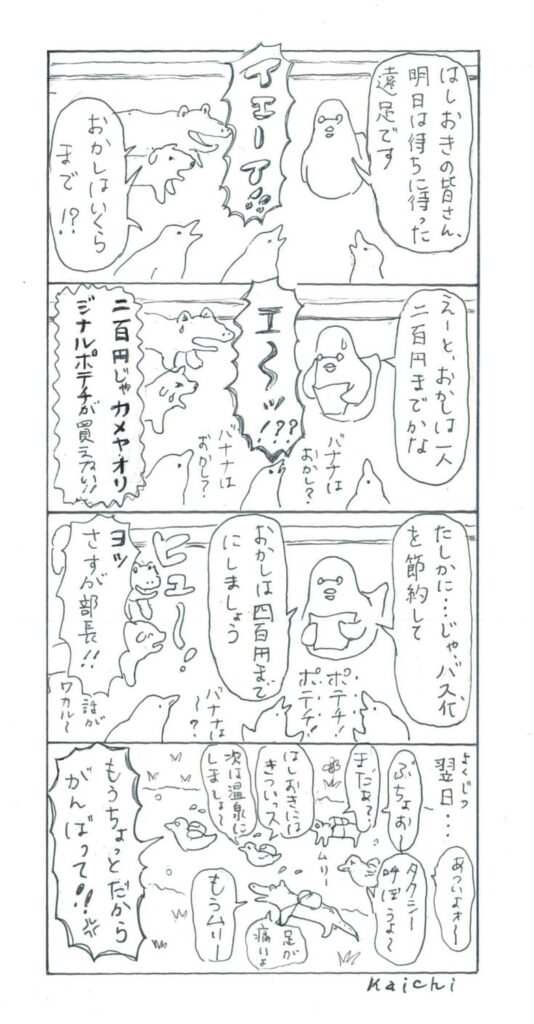 はしおきの皆さん、
明日は待ちに待った
遠足です
イエーイ!!
おかしはいくら
まで!?
えーと、おかしは一人
二百円までかな
エ〜ッ!??
バナナは
おかし?
バナナは
おかし?
二百円じゃカメヤオリ
ジナルポテチが買えない!!
たしかに…じゃ、バス代
を節約して
おかしは四百円まで
にしましょう
ポテチ!
ポテチ!
ヒュー!
バナナは
〜?
ヨッ
さすが部長!!
誰が
ワカル〜
よくじつ
翌日…
あついよォ〜
ぶちょお〜
タクシー
呼ぼうよ〜
まだぁ?
ムリー
はしおきには
きついっス
次は温泉に
しましょ〜
足が
痛いよ
もうムリー
もうちょっとだから
がんばって!!
Kaichi